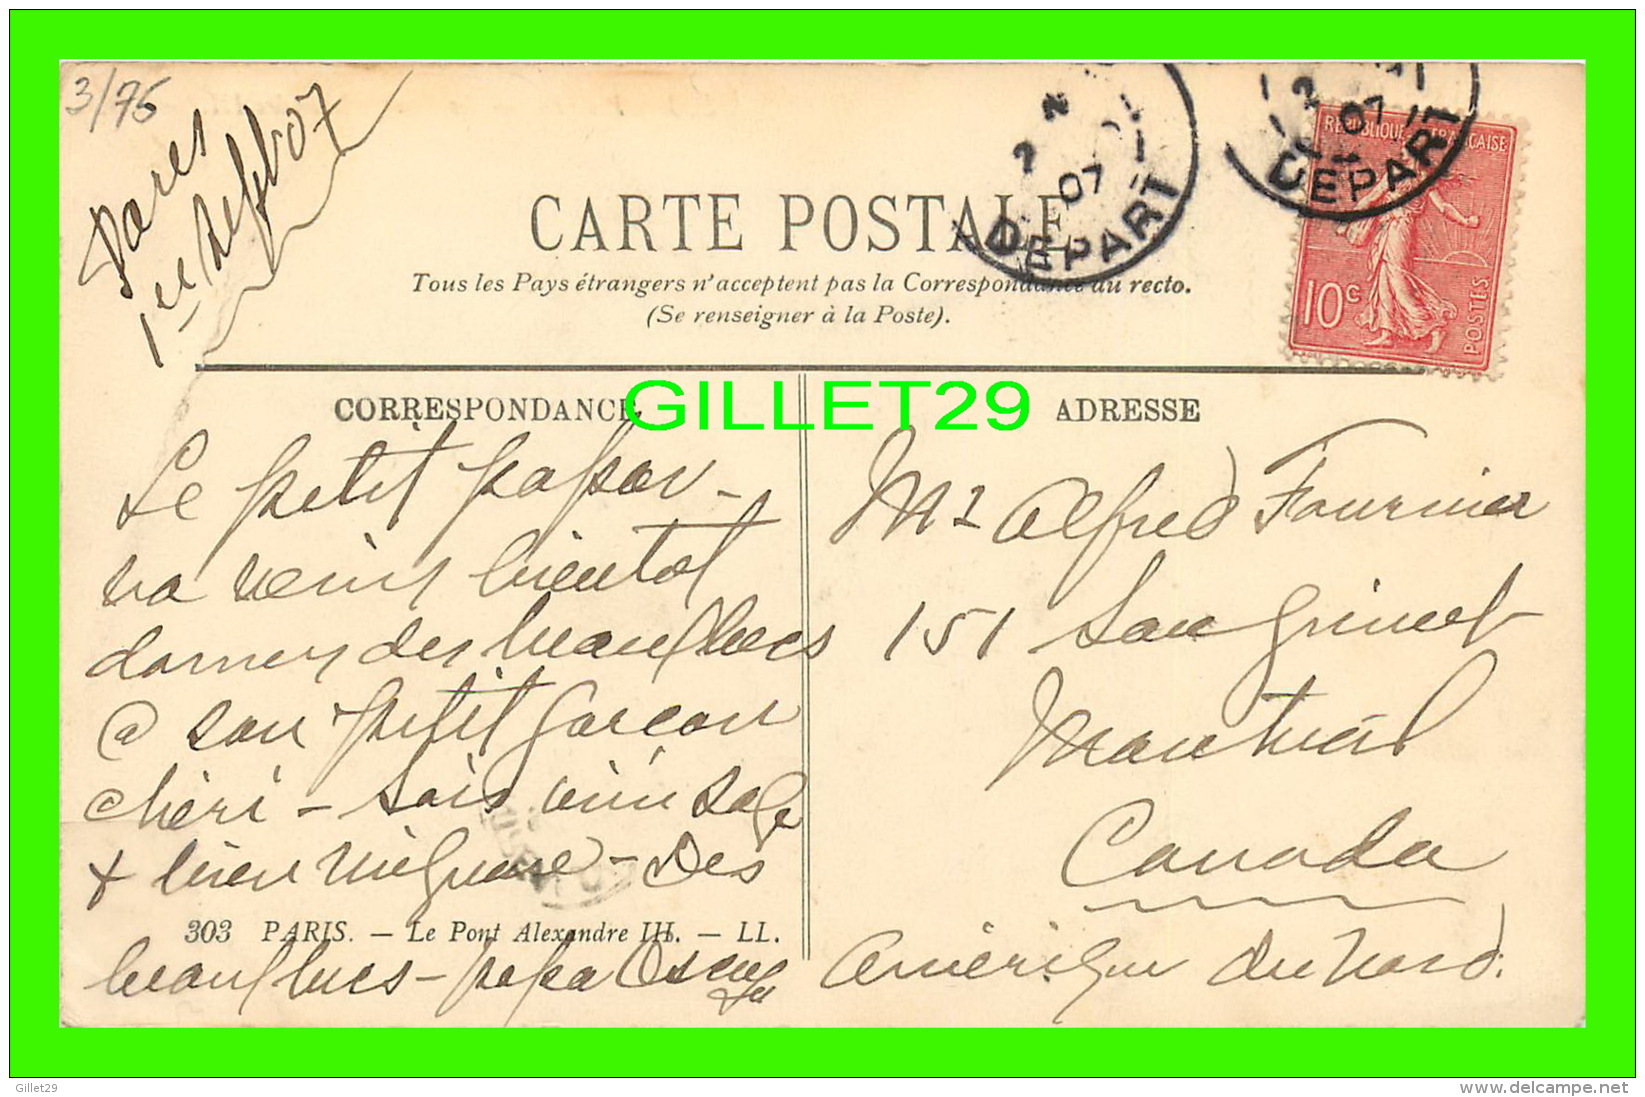 3/75
Paris
1er Sept 07
CARTE POSTALE
Tous les Pays étrangers n'acceptent pas la Correspondance au recto.
(Se renseigner à la Poste).
2
07
DEPART
2
07
DEPART
REPUBLIQUE FRANÇAISE
10c
POSTES
CORRESPONDANCE
GILLET29
ADRESSE
Le petit papa
va venir bientot
donner des beaux becs
a son petit garcon
cheri - sois bien sage
+ bien mignon - Des
303 PARIS. — Le Pont Alexandre III. — LL.
beaux becs - papa Oscar
Mr Alfred Fournier
151 Sanguinet
Montreal
Canada
Amérique du Nord.
Gillet29
www.delcampe.net